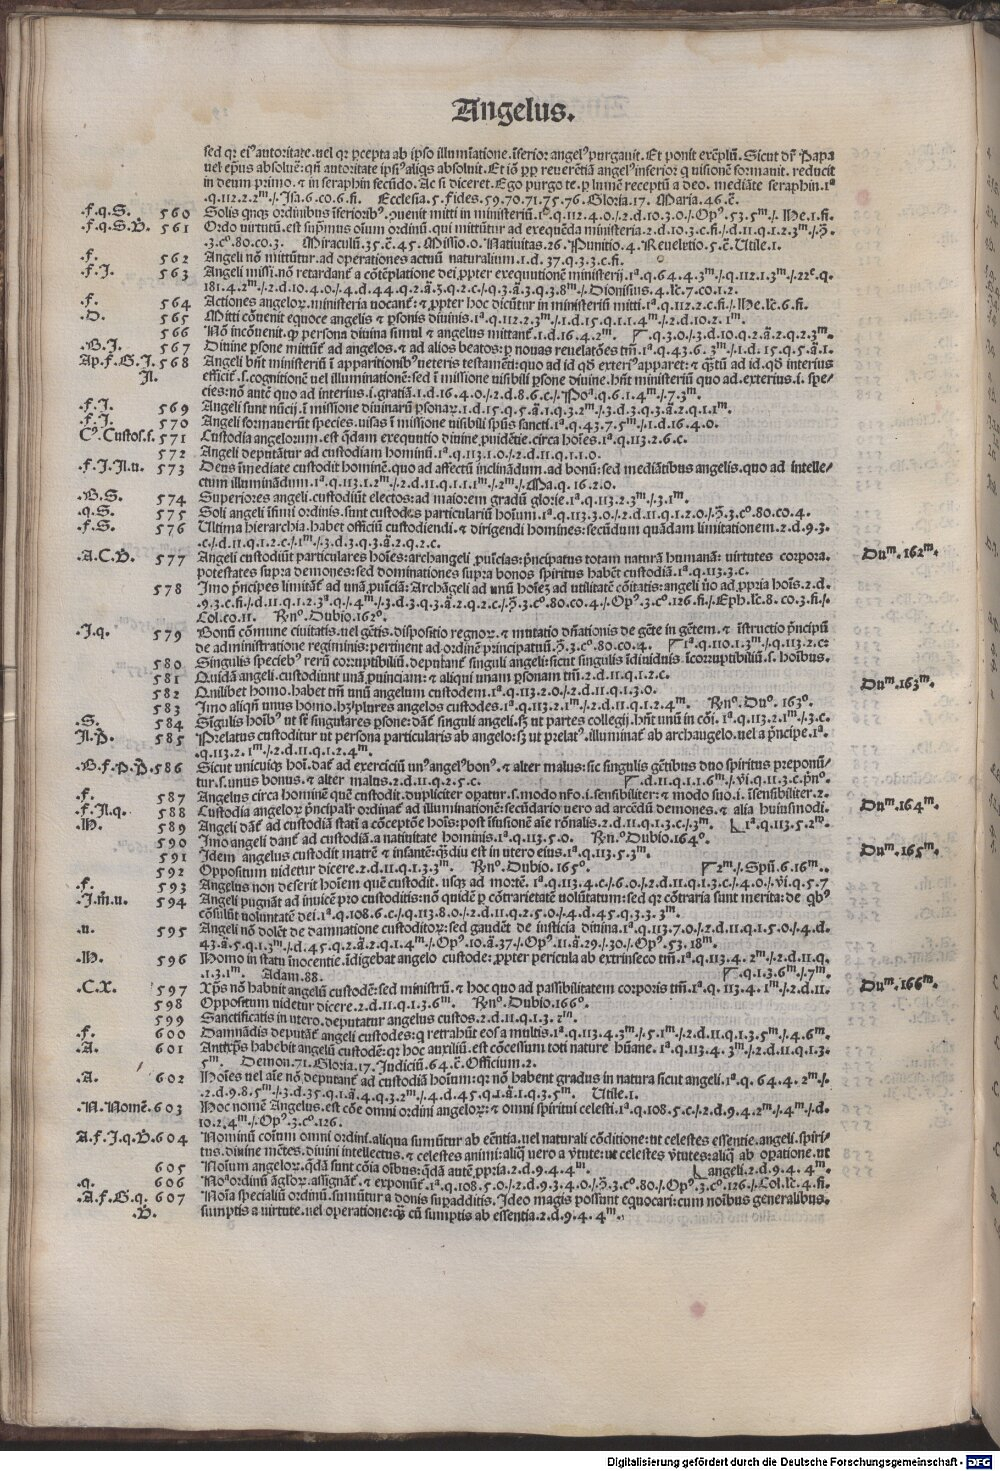 Angelus.
sed qr ei⁹ autoritate. uel qr p̱cepta ab ipso illumīatione. īferior angel⁹ purgauit. Et ponit exēplū. Sicut dr̄ Papa
uel ep̄us absoluē: qn̄ autoritate ipsi⁹ aliq̄s absoluit. Et iō p̱p reuerētiā angel⁹ inferior q uisionē formauit. reducit
in deum primo. ⁊ in seraphin secūdo. Ac si diceret. Ego purgo te. p̱ lumē receptū a deo. mediāte seraphin. 1ª
.q.112.2.2ᵐ./. Isa.6.co.6.fi. Ecclesia.5. Fides.59.70.71.75.76. Gloria.17. Maria.46.c̄.
.f.q.S. 560 Solis quīq̢ ordinibus īferiorib⁹. ɔuenit mitti in ministeriū.1ª.q.112.4.0./.2.d.10.3.0./.Op⁹.53.5ᵐ./. He.1.fi.
.f.q.S.V̄. 561 Ordo uirtutū. est sup̄mus oīum ordinū. qui mittūtur ad exequēda ministeria.2.d.10.3.c.fi./.d.11.q.1.2.3ᵐ./.P̄.
.3.cº.80.co.3. Miraculū.35.c̄.45. Missio.0. Natiuitas.26. Punitio.4. Reuel̄tio.5.c̄. Utile.1.
.f. 562 Angeli nō mittūtur. ad operationes actuū naturalium.1.d.37.q.3.3.c.fi.
.f.J. 563 Angeli missi. nō retardant̄ a cōtēplatione dei. p̱pter exequutionē ministerij.1ª.q.64.4.3ᵐ./.q.112.1.3ᵐ./.22ᵉ.q.
181.4.2ᵐ./.2.d.10.4.0./.4.d.44.q.2.ā.3.q.2.c./.q.3.ā.3.q.3.8ᵐ./. Dionisius.4.lc̄.7.co.1.2.
.f. 564 Actiones angelor̢. ministeria uocant̄: ⁊ p̱pter hoc dicūtur in ministeriū mitti.1ª.q.112.2.c.fi./. He.lc̄.6.fi.
.D. 565 Mitti cōuenit equoce angelis ⁊ p̱sonis diuinis.1ª.q.112.2.3ᵐ./.1.d.15.q.1.1.4ᵐ./.2.d.10.2.1ᵐ.
566 Nō incōuenit. q̢ persona diuina simul ⁊ angelus mittant̄.1.d.16.4.2ᵐ. ┌.q.3.0./.3.d.10.q.2.ā.2.q.2.3ᵐ.
.G.J. 567 Diuine p̱sone mittūt̄ ad angelos. ⁊ ad alios beatos: p̱ nouas reuelatōes tm̄.1ª.q.43.6.3ᵐ./.1.d.15.q.5.ā.1.
Ap.f.G.J. 568 Angeli hn̄t ministeriū ī apparitionib⁹ ueteris testamēti: quo ad id qd̄ exteri⁹ apparet: ⁊ q̄stū ad id. qd̄ interius
Jl. efficit̄. s. cognitionē uel illuminationē: sed ī missione uisibili p̱sone diuine. hn̄t ministeriū quo ad. exterius. i. spe⸗
cies: nō autē quo ad interius. i. gratiā.1.d.16.4.0./.2.d.8.6.c./. Poª.q.6.1.4ᵐ./.7.3ᵐ.
.f.J. 569 Angeli sunt nūcij. ī missione diuinarū p̱sonar̢.1.d.15.q.5.ā.1.q.3.2ᵐ./.3.d.3.q.3.ā.2.q.1.1ᵐ.
.f.J. 570 Angeli formauerūt species. uisas ī missione uisibili sp̄us sancti.1ª.q.43.7.5ᵐ./.1.d.16.4.0.
C⁹.Custos.f. 571 Custodia angelorum. est q̄dam exequutio diuine p̱uidētie. circa hoīes.1ª.q.113.2.6.c.
572 Angeli deputātur ad custodiam hominū.1ª.q.113.1.0./.2.d.11.q.1.1.0.
.f.J.Jl.u. 573 Deus īmediate custodit hominē. quo ad affectū inclināndum. ad bonū: sed mediātibus angelis. quo ad intelle⸗
ctum illuminādum.1ª.q.113.1.2ᵐ./.2.d.11.q.1.1.1ᵐ./.2ᵐ./. Ma.q.16.2.0.
.G.S. 574 Superiores angeli. custodiūt electos: ad maiorem gradū glorie.1ª.q.113.2.3ᵐ./.3.1ᵐ.
q.S. 575 Soli angeli īfimi ordinis. sunt custodes particulariū hoīum.1ª.q.113.3.0./.2.d.11.q.1.2.0./.P̄.3.cº.80.co.4.
.f.S. 576 Ultima hierarchia. habet officiū custodiendi. ⁊ dirigendi homines: secūdum quādam limitationem.2.d.9.3.
.c./.d.11.q.1.2.c./.1ᵐ./.3.d.3.q.3.ā.2.q.2.c.
.A.C.V̄. 577 Angeli custodiūt particulares hoīes: archangeli. p̱uīcias: p̄ncipatus totam naturā humanā: uirtutes corpora. Duᵐ.162ᵐ.
potestates supra demones: sed dominationes supra bonos spiritus habent̄ custodiā.1ª.q.113.3.c.
578 Imo p̄ncipes limitāt̄ ad unā p̱uīciā: Archāgeli ad unū hoīez ad utilitatē cōitatis: angeli u̇o ad. p̱pria hoīs.2.d.
.9.3.c.fi./.d.11.q.1.2.3ª.q./.4ᵐ./.3.d.3.q.3.ā.2.q.2.c./.P̄.3.cº.80.co.4./.Op⁹.3.cº.126.fi./.Eph.lc̄.8.co.3.fi./.
Col.co.11. Rn̄º. Dubio.162º.
.J.q. 579 Bonū cōmune ciuitatis. uel gētis. dispositio regnor̢. ⁊ mutatio dn̄ationis de gēte in gētem. ⁊ īstructio p̄ncipū
de administratione regiminis: pertinent ad ordinē principatuū.P̄.3.cº.80.co.4. ┌1ª.q.110.1.3ᵐ./.q.113.2.c:
580 Singulis specieb⁹ rerū corruptibiliū. deputant̄ singuli angeli: sicut singulis īdiuiduis īcorruptibiliū. s. hoībus.
581 Quidā angeli. custodiunt unā p̱uinciam: ⁊ aliqui unam p̱sonam tm̄.2.d.11.q.1.2.c.
582 Quilibet homo. habet tm̄ unū angelum custodem.1ª.q.113.2.0./.2.d.11.q.1.3.0. Duᵐ.163ᵐ.
583 Imo aliqn̄ unus homo. hz̄ plures angelos custodes.1ª.q.113.2.1ᵐ./.2.d.11.q.1.2.4ᵐ. Rn̄º. Duº.163º.
.S. 584 Sīgulis hoīb⁹ ut sī singulares p̱sone: dāt̄ singuli angeli. sz̄ ut partes collegij. hn̄t unū in cōi.1ª.q.113.2.1ᵐ./.3.c.
Jl.P̄. 585 Prelatus custoditur ut persona particularis ab angelo: sz̄ ut prelat⁹. illuminat̄ ab archangelo. uel a p̄ncipe.1ª.
.q.113.2.1ᵐ./.2.d.11.q.1.2.4ᵐ.
.G.f.P.P̄. 586 Sicut unicuiq̢ hoī. dat̄ ad exerciciū un⁹ angel⁹ bon⁹. ⁊ alter malus: sic singulis gētibus duo spiritus preponū⸗
tur. s. unus bonus. ⁊ alter malus.2.d.11.q.2.5.c. ┌.d.11.q.1.1.6ᵐ./.vi.q.11.3.c.p̄nº.
.f. 587 Angelus circa hominē quē custodit. dupliciter opatur. s. modo nr̄o. i. sensibiliter: ⁊ modo suo. i. īsensibiliter.2.
.f.Jl.q. 588 Custodia angelor̢ p̄ncipalr̄ ordinat̄ ad illuminationē: secūdario uero ad arcēdū demones. ⁊ alia huiusmodi. Duᵐ.164ᵐ.
.H. 589 Angeli dāt̄ ad custodiā statī a cōceptōe hoīs: post īfusionē aīe rōnalis.2.d.11.q.1.3.c./.3ᵐ. └1ª.q.113.5.2ᵐ.
590 Imo angeli dant̄ ad custodiā. a natiuitate hominis.1ª.q.113.5.0. Rn̄º. Dubio.164º.
591 Idem angelus custodit matrē ⁊ infantē: q̄diu est in utero eius.1ª.q.113.5.3ᵐ. Duᵐ.165ᵐ.
592 Oppositum uidetur dicere.2.d.11.q.1.3.3ᵐ. Rn̄º. Dubio.165º. ┌2ᵐ./. Spū.6.16ᵐ..
.f. 593 Angelus non deserit hoīem quē custodit. usq̢ ad mortē.1ª.q.113.4.c./.6.0./.2.d.11.q.1.3.c./.4.0./.vi.q.5.7
.J.m̄.u. 594 Angeli pugnāt ad inuicē pro custoditis: nō quidē p̱ cōtrarietatē uolūtatum: sed qr cōtraria sunt merita: de qb⁹
cōsulūt uoluntatē dei.1ª.q.108.6.c./.q.113.8.0./.2.d.11.q.2.5.0./.4.d.45.q.3.3.3ᵐ.
.u. 595 Angeli nō dolēt̄ de damnatione custoditor̢: sed gaudēt̄ de iusticia diuina.1ª.q.113.7.0./.2.d.11.q.1.5.0./.4.d.
43.ā.5.q.1.3ᵐ./.d.45.q.2.ā.2.q.1.4ᵐ./.Op⁹.10.ā.37./.Op⁹.11.ā.29./.30./.Op⁹.53.18ᵐ.
.H. 596 Homo in statu īnocentie. īdigebat angelo custode: p̱pter pericula ab extrinseco tm̄.1ª.q.113.4.2ᵐ./.2.d.11.q.
.1.3.1ᵐ. Adam.88. ┌.q.1.3.6ᵐ./.7ᵐ.
.C.X. 597 Xp̄s nō habuit angelū custodē: sed ministrū. ⁊ hoc quo ad passibilitatem corporis tm̄.1ª.q.113.4.1ᵐ./.2.d.11. Duᵐ.166ᵐ.
598 Oppositum uidetur dicere.2.d.11.q.1.3.6ᵐ. Rn̄º. Dubio.166º.
599 Sanctificatis in utero. deputatur angelus custos.2.d.11.q.1.3.2ᵐ.
.f. 600 Damnādis deputāt̄ angeli custodes: q retrahūt eos a multis.1ª.q.113.4.3ᵐ./.5.1ᵐ./.2.d.11.q.1.3.5ᵐ./.4.6ᵐ.
.A. 601 Antixp̄s habebit angelū custodē: qr hoc auxiliū. est cōcessum toti nature hūane.1ª.q.113.4.3ᵐ./.2.d.11.q.1.3.
5ᵐ. Demon.71. Gloria.17. Judiciū.64.c̄. Officium.2.
.A. 602 Hoīes uel aīe nō deputant̄ ad custodiā hoīum: qr nō habent gradus in natura sicut angeli.1ª.q.64.4.2ᵐ./.
.2.d.9.8.5ᵐ./.3.d.35.q.1.ā.4.q.3.2ᵐ./.4.d.45.q.1.ā.1.q.3.5ᵐ. Utile.1.
.N.Nomē. 603 Hoc nomē Angelus. est cōe omni ordini angelor̢: ⁊ omni spiritui celesti.1ª.q.108.5.c./.2.d.9.4.2ᵐ./.4ᵐ./.d.
10.2.4ᵐ./.Op⁹.3.cº.126.
A.f.J.q.V̄. 604 Nominū coīum omni ordini. aliqua sumūtur ab eēntia. uel naturali cōditione: ut celestes essentie. angeli. spiri⸗
tus. diuine mētes. diuini intellectus. ⁊ celestes animi: aliq̄ uero a v̄tute: ut celestes v̄tutes: aliq̄ ab opatione. ut
605 Noīum angelor̢. q̄dā sunt cōia oībus: q̄dā autē p̱pria.2.d.9.4.4ᵐ. └angeli.2.d.9.4.4ᵐ.
.q. 606 No⁹ ordinū āglor̢. assignāt̄ ⁊ exponūt̄.1ª.q.108.5.0./.2.d.9.3.4.0./.P̄.3.cº.80./.Op⁹.3.cº.126./.Col.lc̄.4.fi.
.A.f.G.q. 607 Noīa specialiū ordinū. sumūtur a donis supadditis. Ideo magis possunt equocari: cum noībus generalibus.
.V̄. sumptis a uirtute. uel operatione: q̄ȝ cū sumptis ab essentia.2.d.9.4.4ᵐ.
Digitalisierung gefördert durch die Deutsche Forschungsgemeinschaft - DFG